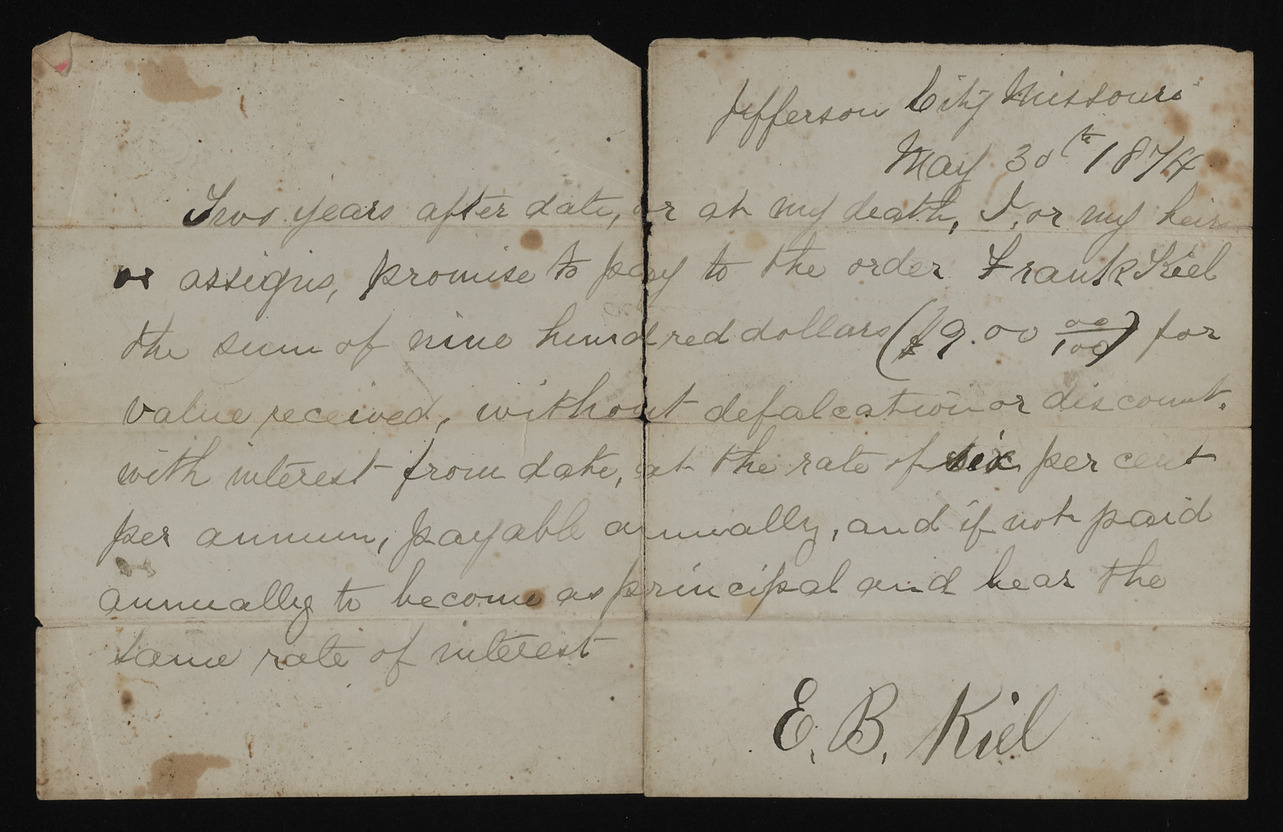 Jefferson City Missouri
May 30th 1874
Two years after date, or at my death, I, or my heirs
or assigns, promise to pay to the order Frank Kiel
the sum of nine hundred dollars ($9.00 00/100) for
value received, without defalcation or discount.
with interest from date, at the rate of six per cent
per annum, payable annually, and if not paid
annually to become as principal and bear the
same rate of interest
E. B. Kiel